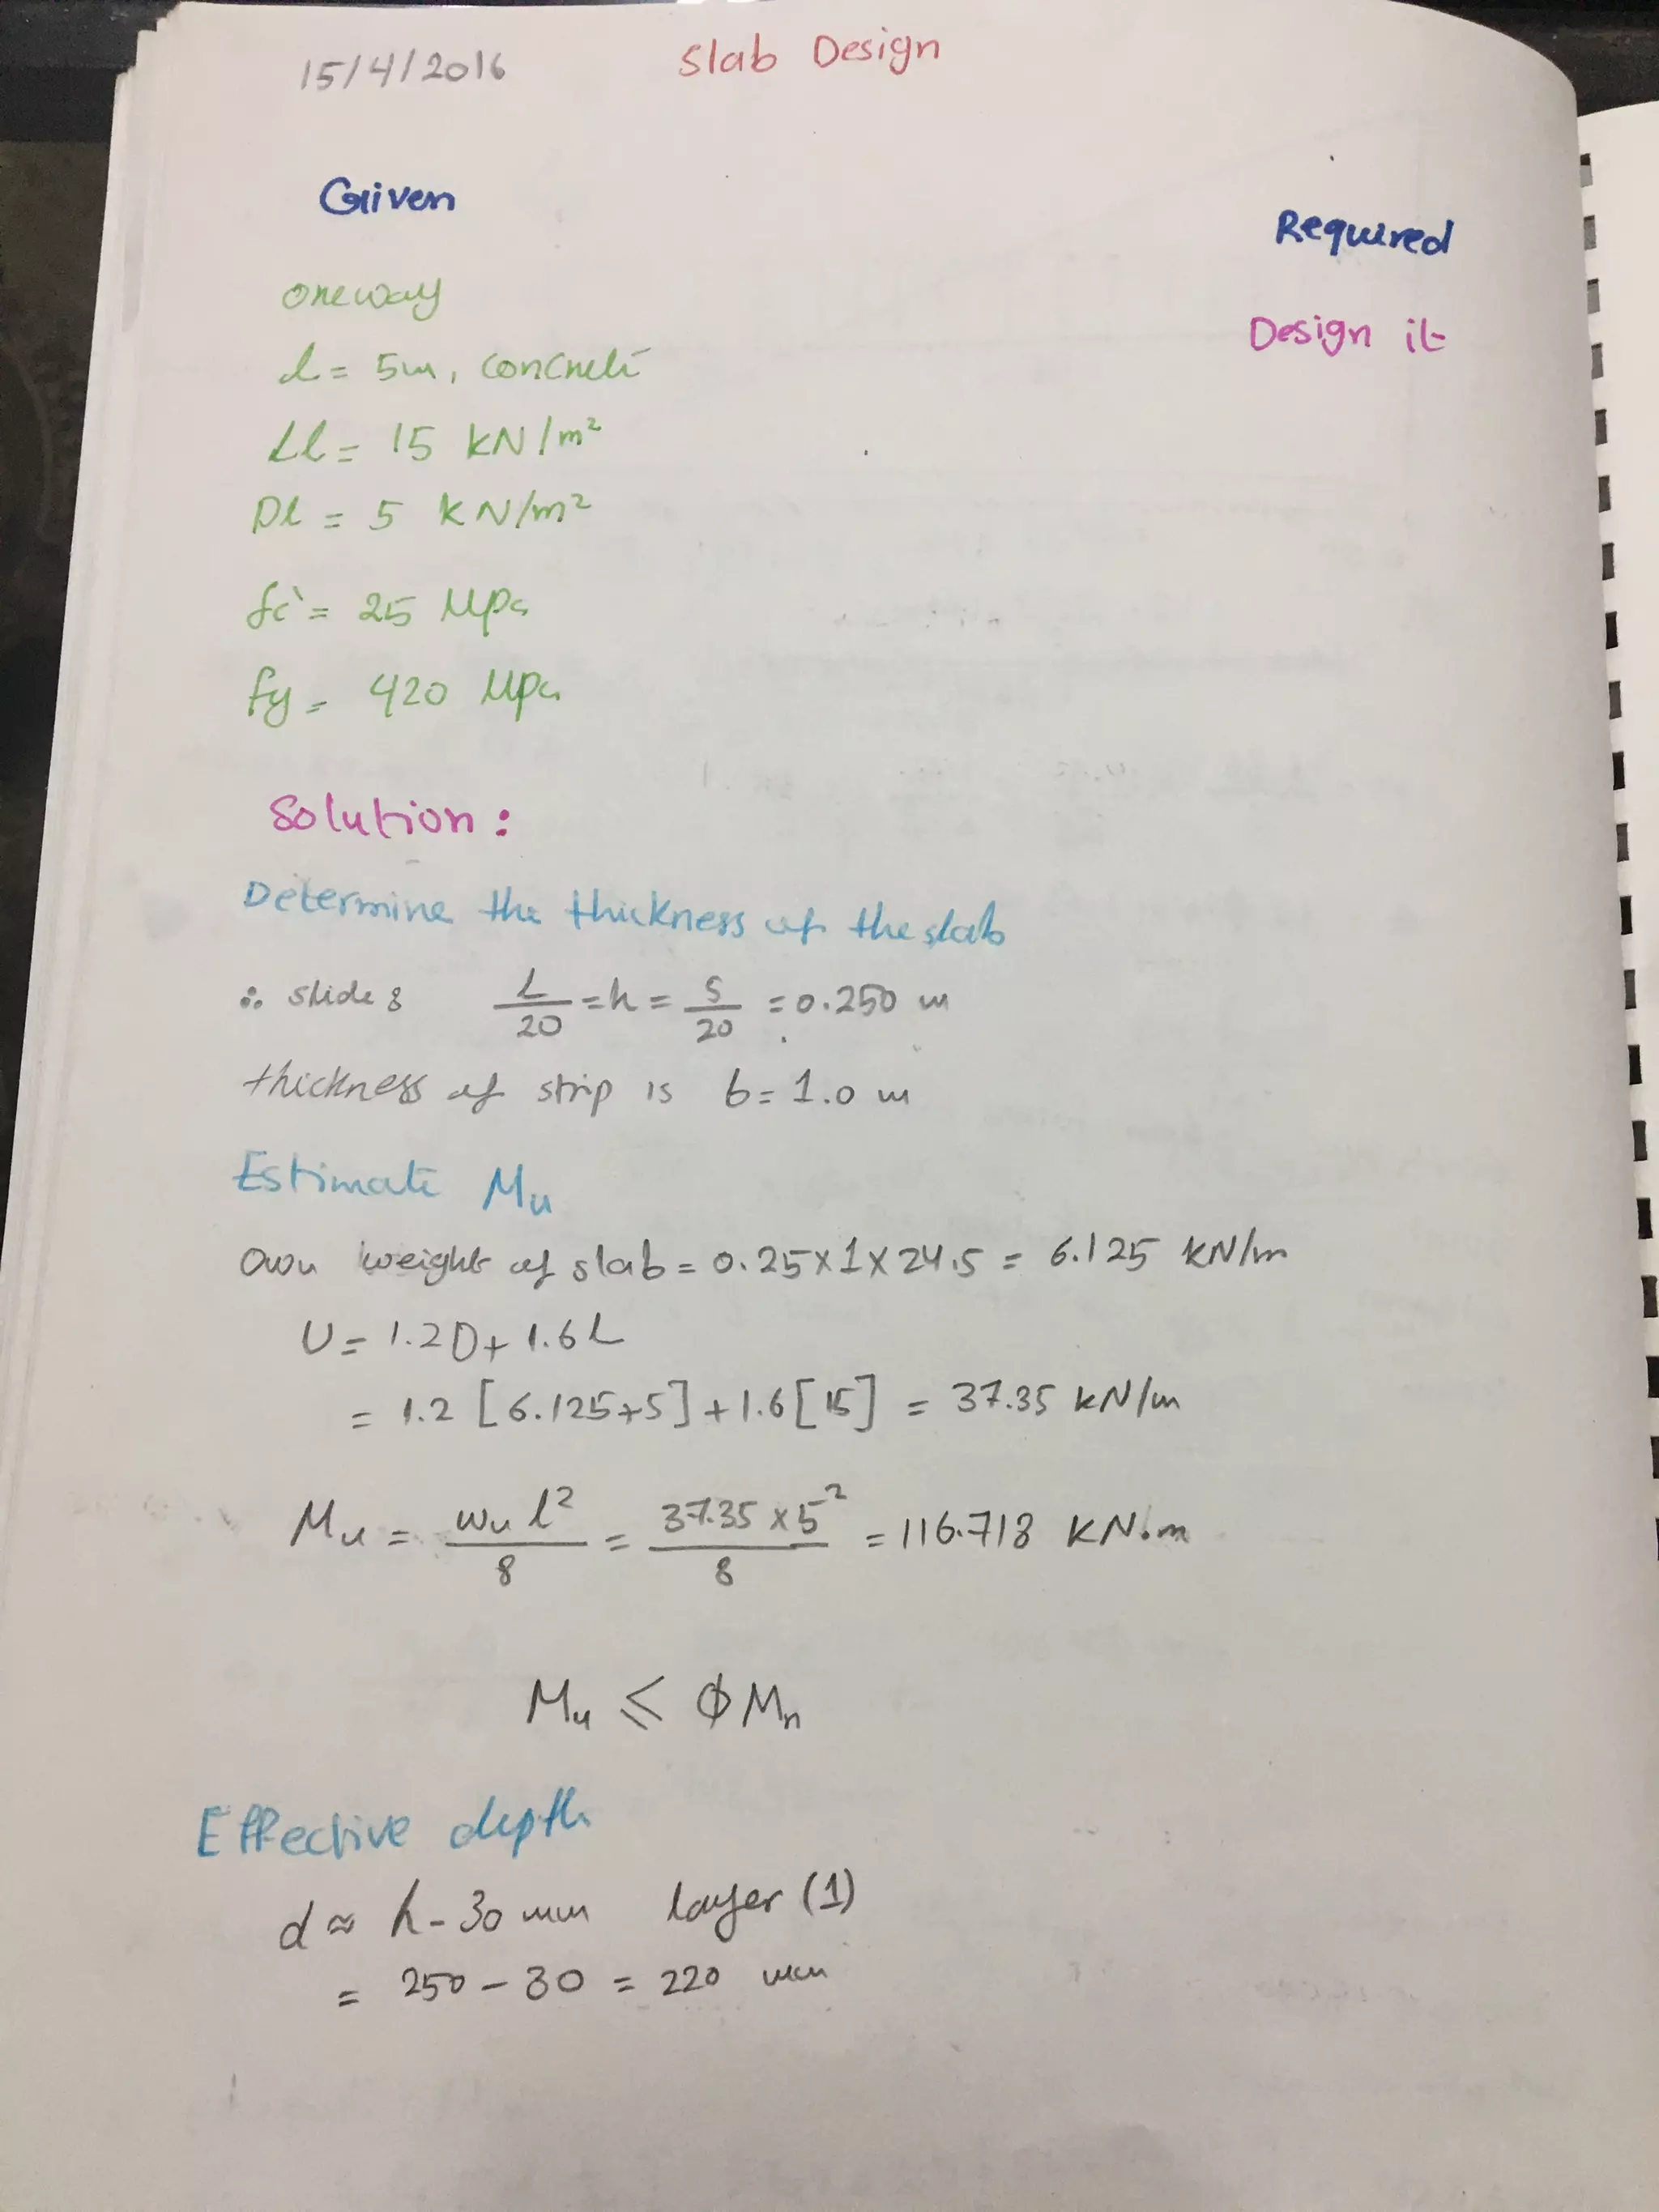 15/4/2016 Slab Design
Given
Required
oneway
Design it
l = 5m, concrete
Ll = 15 kN/m²
Dl = 5 kN/m²
fc' = 25 MPa
fy = 420 MPa
Solution:
Determine the thickness of the slab
∴ slide 8 L/20 = h = 5/20 = 0.250 m
thickness of strip is b = 1.0 m
Estimate Mu
Own weight of slab = 0.25 x 1 x 24.5 = 6.125 kN/m
U = 1.2D + 1.6L
= 1.2 [6.125+5] + 1.6[15] = 37.35 kN/m
Mu = wu l²/8 = 37.35 x 5²/8 = 116.718 KN.m
Mu ≤ ϕ Mn
Effective depth
d ≈ h - 30 mm layer (1)
= 250 - 30 = 220 mm